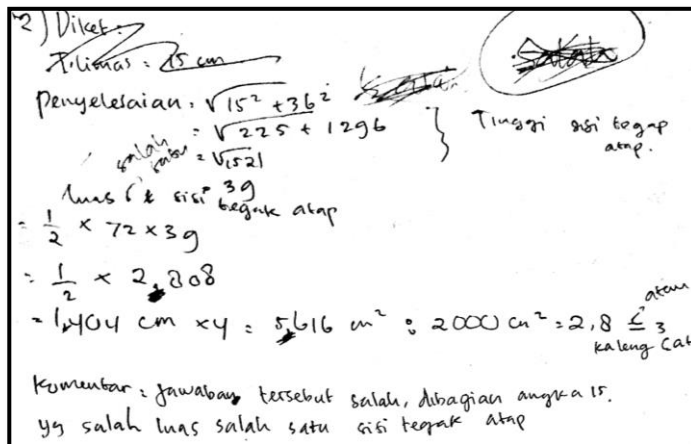 2) Diket:
T. limas = 15 cm
Penyelesaian = √15² + 36²
= √225 + 1296 } Tinggi sisi tegap atap.
= √1521
= 39
luas salah satu sisi tegak atap
= 1/2 × 72 × 39
= 1/2 × 2.808
= 1.404 cm × 4 = 5.616 cm² : 2000 cm² = 2,8 ≤ 3 kaleng Cat
atau
Komentar = jawaban tersebut salah, dibagian angka 15.
yg salah luas salah satu sisi tegak atap